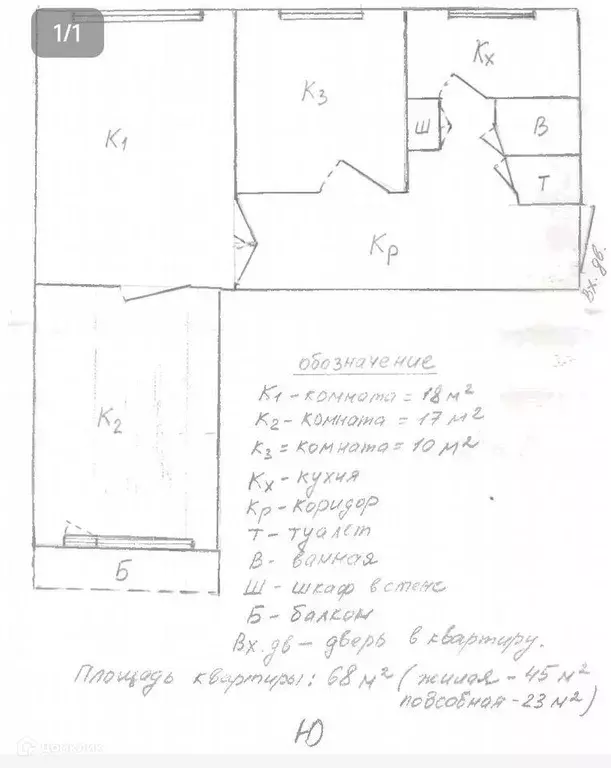 1/1
К3
Кх
К1
Ш
В
Т
Кр
Вх. дв.
обозначение
К1 - комната = 18 м²
К2
К2 - комната = 17 м²
к3 = комната = 10 м²
Кх - кухня
Кр - коридор
Т - туалет
В - ванная
Б
Ш - шкаф в стене
Б - балкон
Вх. дв - дверь в квартиру.
Площадь квартиры: 68 м² (жилая - 45 м²
подсобная - 23 м²)
Ю